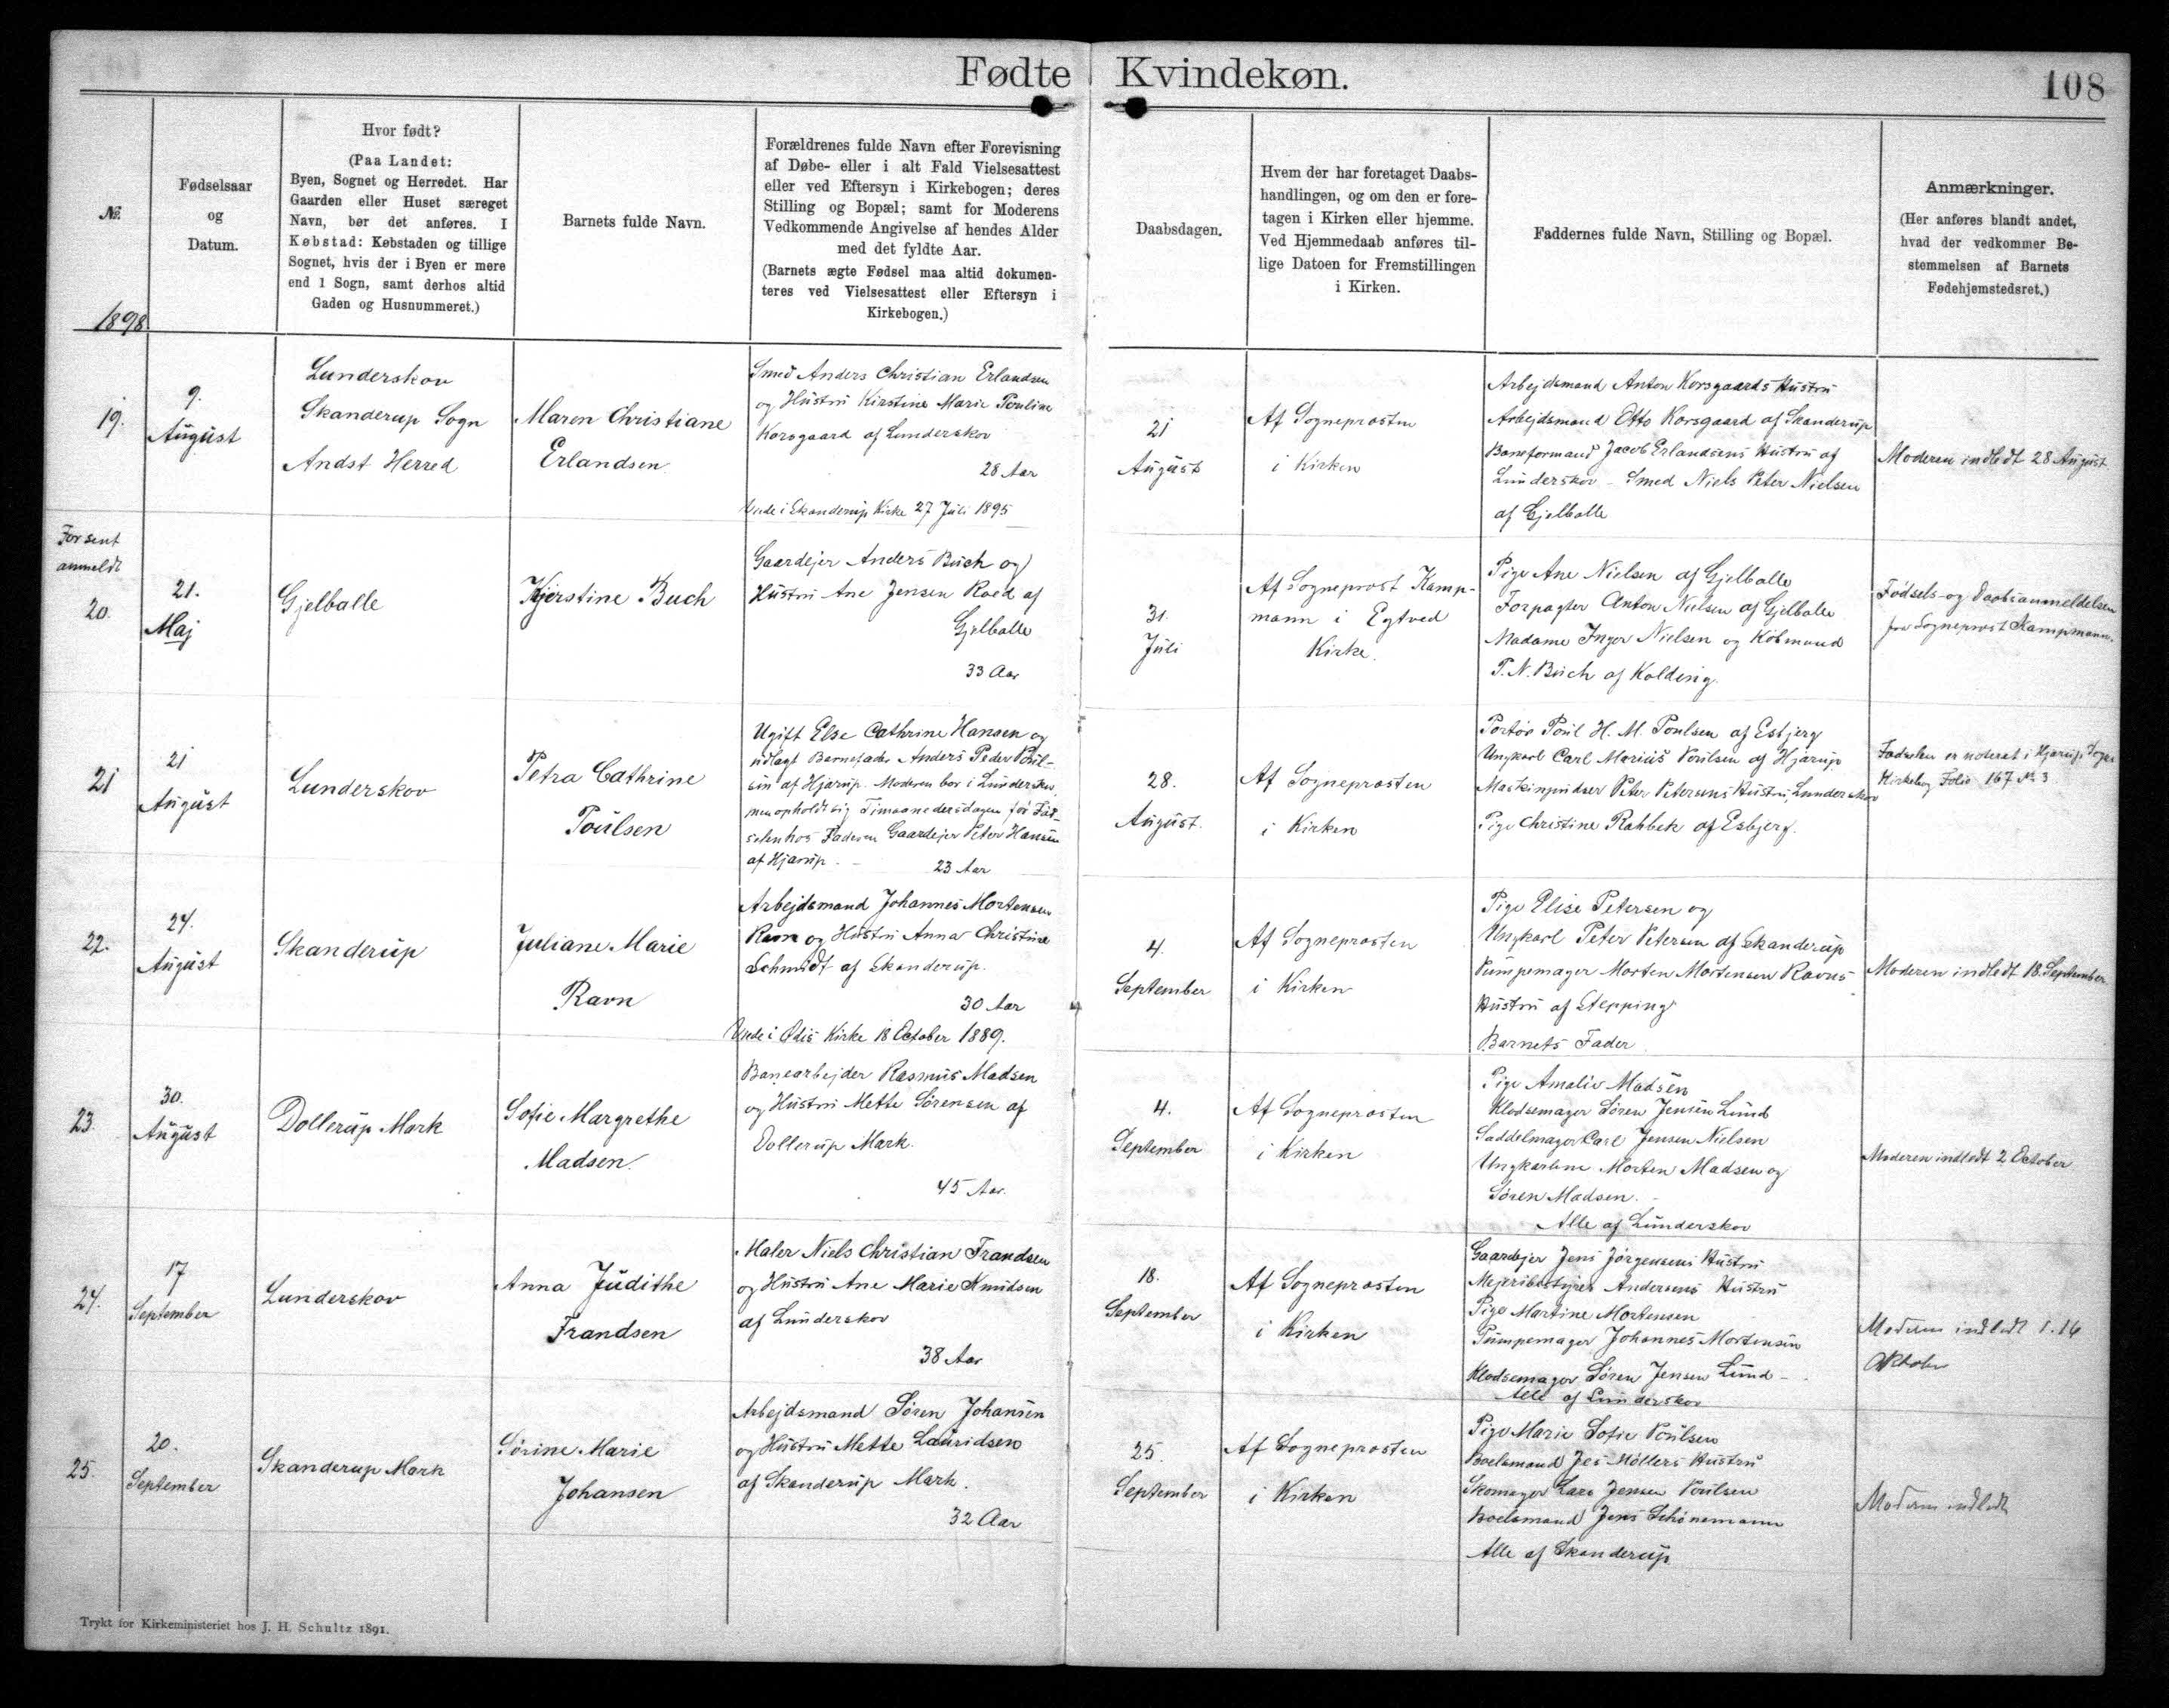 Fødte Kvindekøn.
108
№
Fødselsaar
og
Datum.
Hvor født?
(Paa Landet:
Byen, Sognet og Herredet. Har
Gaarden eller Huset særeget
Navn, bør det anføres. I
Købstad: Købstaden og tillige
Sognet, hvis der i Byen er mere
end 1 Sogn, samt derhos altid
Gaden og Husnummeret.)
Barnets fulde Navn.
Forældrenes fulde Navn efter Forevisning
af Døbe- eller i alt Fald Vielsesattest
eller ved Eftersyn i Kirkebogen; deres
Stilling og Bopæl; samt for Moderens
Vedkommende Angivelse af hendes Alder
med det fyldte Aar.
(Barnets ægte Fødsel maa altid dokumen-
teres ved Vielsesattest eller Eftersyn i
Kirkebogen.)
Daabsdagen.
Hvem der har foretaget Daabs-
handlingen, og om den er fore-
tagen i Kirken eller hjemme.
Ved Hjemmedaab anføres til-
lige Datoen for Fremstillingen
i Kirken.
Faddernes fulde Navn, Stilling og Bopæl.
Anmærkninger.
(Her anføres blandt andet,
hvad der vedkommer Be-
stemmelsen af Barnets
Fødehjemstedsret.)
1898
19.
9.
August
Lunderskov
Skanderup Sogn
Andst Herred
Maren Christiane
Erlandsen
Smed Anders Christian Erlandsen
og Hustru Kirstine Marie Pouline
Korsgaard af Lunderskov
28 Aar
Viede i Skanderup Kirke 27 Juli 1895
21
August
Af Sogneprosten
i Kirken
Arbejdsmand Anton Korsgaards Hustru
Arbejdsmand Otto Korsgaard af Skanderup
Baneformand Jacob Erlandsens Hustru af
Lunderskov - Smed Niels Peter Nielsen
af Gjelballe
Moderen indledt 28 August
For sent
anmeldt
20.
21.
Maj
Gjelballe
Kjerstine Buch
Gaardejer Anders Buch og
Hustru Ane Jensen Roed af
Gjelballe
33 Aar
31.
Juli
Af Sogneprovst Kamp-
mann i Egtved
Kirke.
Pige Ane Nielsen af Gjelballe
Forpagter Anton Nielsen af Gjelballe
Madame Inger Nielsen og Købmand
P. N. Buch af Kolding.
Fødsels- og Daabsanmeldelsen
fra Sogneprovst Kampmann.
21
21
August
Lunderskov
Petra Cathrine
Poulsen
Ugift Else Cathrine Hansen og
udlagt Barnefader Anders Peder Poul-
sen af Hjarup. Moderen bor i Lunderskov,
men opholdt sig Timaanedersdagen før Fød-
selen hos Faderen Gaardejer Peter Hansen
af Hjarup. -
23 Aar
28.
August.
Af Sogneprosten
i Kirken
Portør Poul H. M. Poulsen af Esbjerg
Ungkarl Carl Marius Poulsen af Hjarup
Maskinpudser Peter Petersens Hustru, Lunderskov
Pige Christine Rahbek af Esbjerg.
Fødselen er noteret i Hjarup Sogns
Kirkebog Folio 167 № 3
22.
24.
August
Skanderup
Juliane Marie
Ravn
Arbejdsmand Johannes Mortensen
Ravn og Hustru Anna Christine
Schmidt af Skanderup.
30 Aar
Viede i Ødis Kirke 18 October 1889.
4.
September
Af Sogneprosten
i Kirken
Pige Elise Petersen og
Ungkarl Peter Petersen af Skanderup
Pumpemager Morten Mortensen Ravns
Hustru af Stepping
Barnets Fader
Moderen indledt 18. September
23.
30.
August
Dollerup Mark
Sofie Margrethe
Madsen.
Banearbejder Rasmus Madsen
og Hustru Mette Sørensen af
Dollerup Mark.
45 Aar.
4.
September
Af Sogneprosten
i Kirken
Pige Amalie Madsen
Klodsemager Søren Jensen Lund
Saddelmager Carl Jensen Nielsen
Ungkarlene Morten Madsen og
Søren Madsen. -
Alle af Lunderskov
Moderen indledt 2 October
24.
17
September
Lunderskov
Anna Judithe
Frandsen
Maler Niels Christian Frandsen
og Hustru Ane Marie Knudsen
af Lunderskov
38 Aar
18.
September
Af Sogneprosten
i Kirken
Gaardejer Jens Jørgensens Hustru
Mejeribestyrer Andersens Hustru
Pige Martine Mortensen
Pumpemager Johannes Mortensen
Klodsemager Søren Jensen Lund -
Alle af Lunderskov
Moderen indledt 16
Oktober
25.
20.
September
Skanderup Mark
Sørine Marie
Johansen
Arbejdsmand Søren Johansen
og Hustru Mette Lauridsen
af Skanderup Mark.
32 Aar
25.
September
Af Sogneprosten
i Kirken
Pige Marie Sofie Poulsen
Boelsmand Jes Møllers Hustru
Skomager Lars Jensen Poulsen
Boelsmand Jens Schønemann
Alle af Skanderup
Moderen indledt
Trykt for Kirkeministeriet hos J. H. Schultz 1891.